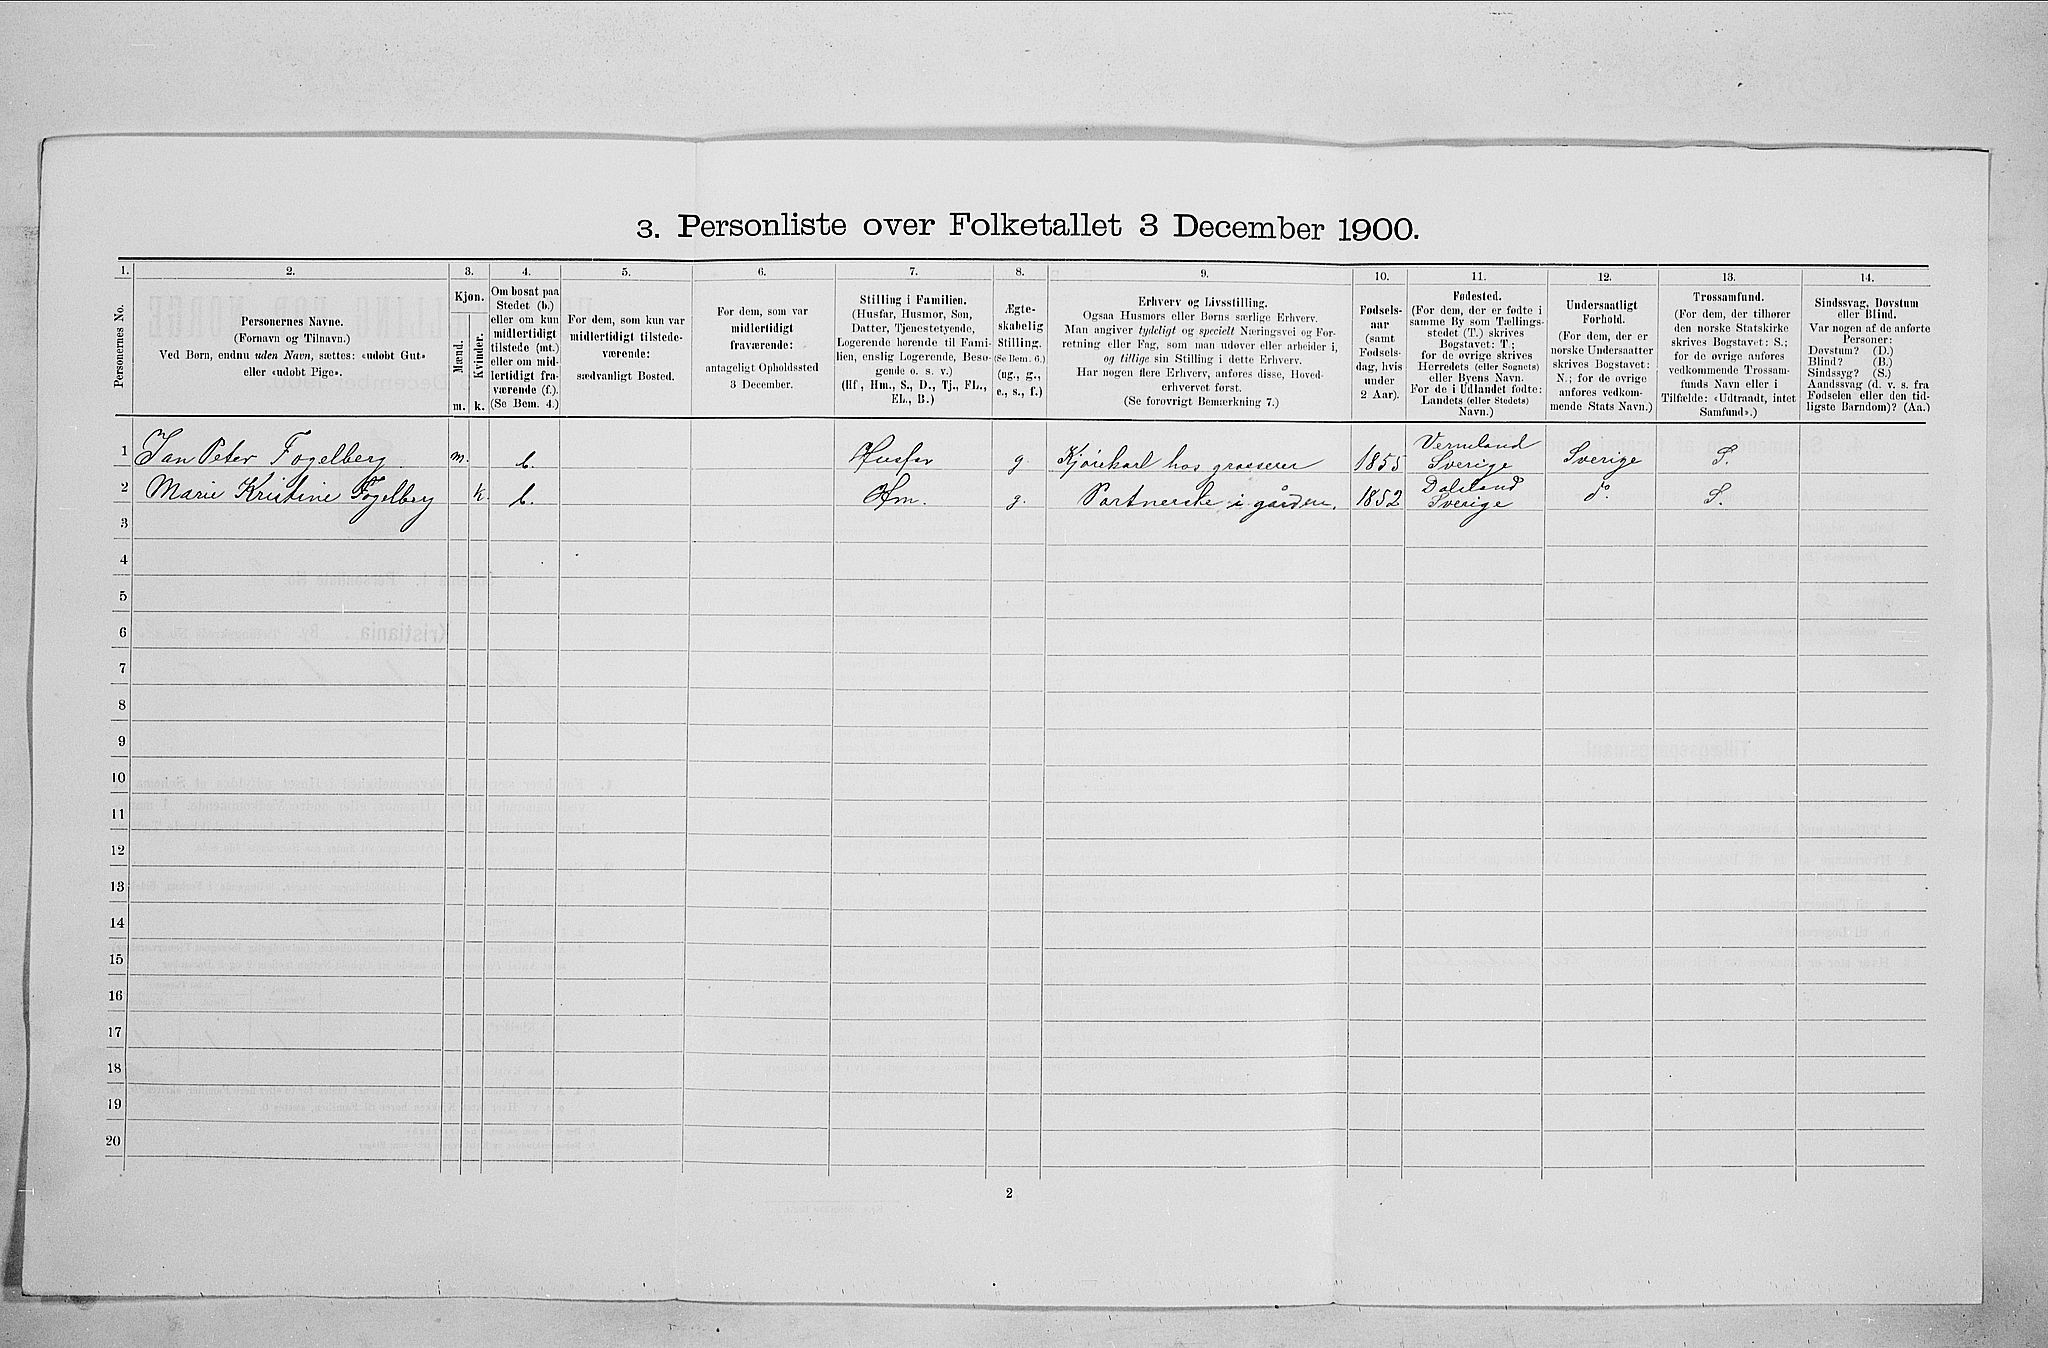 3. Personliste over Folketallet 3 December 1900.
1. 2. 3. 4. 5. 6. 7. 8. 9. 10. 11. 12. 13. 14.
Personernes No.
Personernes Navne.
(Fornavn og Tilnavn.)
Ved Børn, endnu uden Navn, sættes: «udøbt Gut»
eller «udøbt Pige».
Kjøn.
Mænd.
Kvinder.
m. k.
Om bosat paa
Stedet (b.)
eller om kun
midlertidigt
tilstede (mt.)
eller om mid-
lertidigt fra-
værende (f.).
(Se Bem. 4.)
For dem, som kun var
midlertidigt tilstede-
værende:
sædvanligt Bosted.
For dem, som var
midlertidigt
fraværende:
antageligt Opholdssted
3 December.
Stilling i Familien.
(Husfar, Husmor, Søn,
Datter, Tjenestetyende,
Logerende hørende til Fami-
lien, enslig Logerende, Besø-
gende o. s. v.)
(Hf, Hm., S., D., Tj., FL.,
EL., B.)
Ægte-
skabelig
Stilling.
(Se Bem. 6.)
(ug., g.,
e., s., f.)
Erhverv og Livsstilling.
Ogsaa Husmors eller Børns særlige Erhverv.
Man angiver tydeligt og specielt Næringsvei og For-
retning eller Fag, som man udøver eller arbeider i,
og tillige sin Stilling i dette Erhverv.
Har nogen flere Erhverv, anføres disse, Hoved-
erhvervet først.
(Se forøvrigt Bemærkning 7.)
Fødsels-
aar
(samt
Fødsels-
dag, hvis
under
2 Aar).
Fødested.
(For dem, der er fødte i
samme By som Tællings-
stedet (T.) skrives
Bogstavet: T;
for de øvrige skrives
Herredets (eller Sognets)
eller Byens Navn.
For de i Udlandet fødte:
Landets (eller Stedets)
Navn.)
Undersaatligt
Forhold.
(For dem, der er
norske Undersaatter
skrives Bogstavet:
N.; for de øvrige
anføres vedkom-
mende Stats Navn.)
Trossamfund.
(For dem, der tilhører
den norske Statskirke
skrives Bogstavet: S.;
for de øvrige anføres
vedkommende Trossam-
funds Navn eller i
Tilfælde: «Udtraadt, intet
Samfund».)
Sindssvag, Døvstum
eller Blind.
Var nogen af de anførte
Personer:
Døvstum? (D.)
Blind? (B.)
Sindssyg? (S.)
Aandssvag (d. v. s. fra
Fødselen eller den tid-
ligste Barndom)? (Aa.)
1 Jan Peter Fogelberg m. b. Husfar g. Kjørekarl hos grosserer 1855 Vermland Sverige Sverige S.
2 Marie Kristine Fogelberg k. b. Hm. g. Portnerske i gården. 1852 Dalsland Sverige do. S.
3
4
5
6
7
8
9
10
11
12
13
14
15
16
17
18
19
20
2